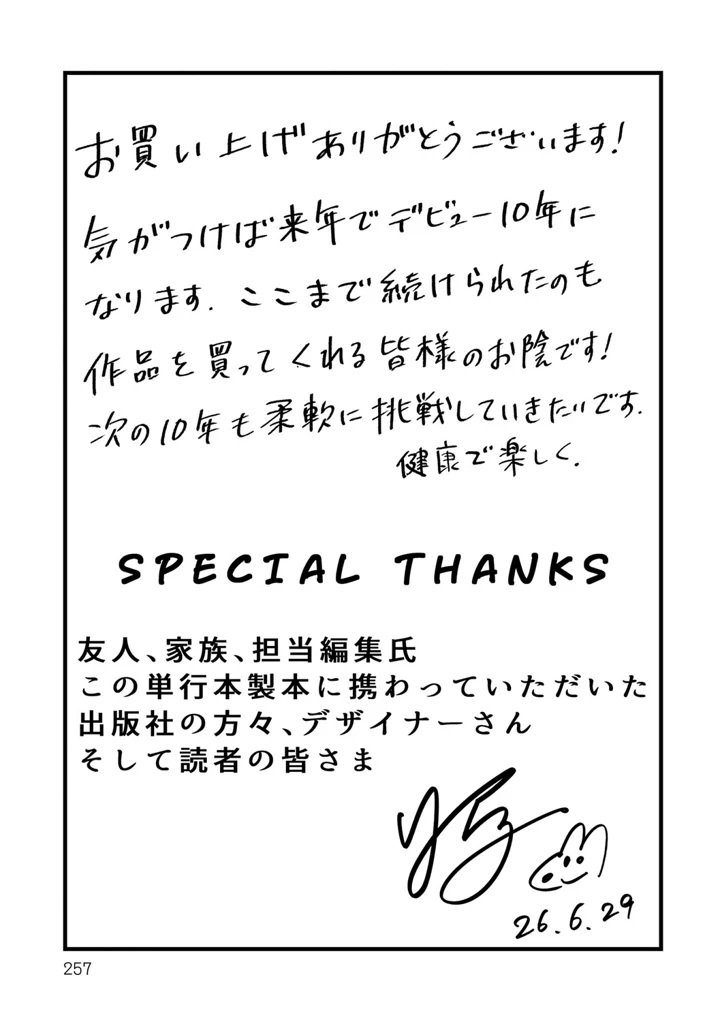 お買い上げありがとうございます!
気がつけば来年でデビュー10年に
なります. ここまで続けられたのも
作品を買ってくれる皆様のお陰です!
次の10年も柔軟に挑戦していきたいです.
健康で楽しく.
SPECIAL THANKS
友人、家族、担当編集氏
この単行本製本に携わっていただいた
出版社の方々、デザイナーさん
そして読者の皆さま
26.6.29
257